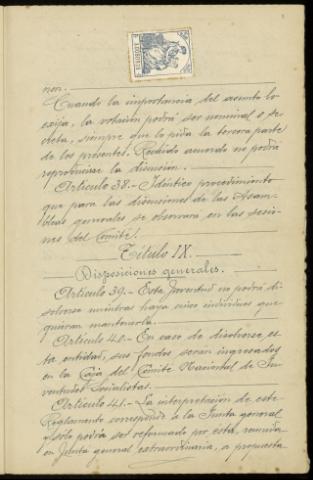 nor.
Cuando la importancia del asunto lo
exija, la votación podrá ser nominal o se-
creta, siempre que lo pida la tercera parte
de los presentes. Recaído acuerdo no podrá
reproducirse la discusión.
Artículo 38.- Idéntico procedimiento
que para las discusiones de las Asam-
bleas generales se observará en las sesio-
nes del Comité.
Título IX.
Disposiciones generales.
Artículo 39.- Esta Juventud no podrá di-
solverse mientras haya cinco individuos que
quieran mantenerla.
Artículo 40.- En caso de disolverse es-
ta entidad, sus fondos serán ingresados
en la Caja del Comité Nacional de Ju-
ventudes Socialistas.
Artículo 41.- La interpretación de este
Reglamento corresponde a la Junta general
y sólo podrá ser reformado por esta, reunida
en Junta general extraordinaria, a propuesta